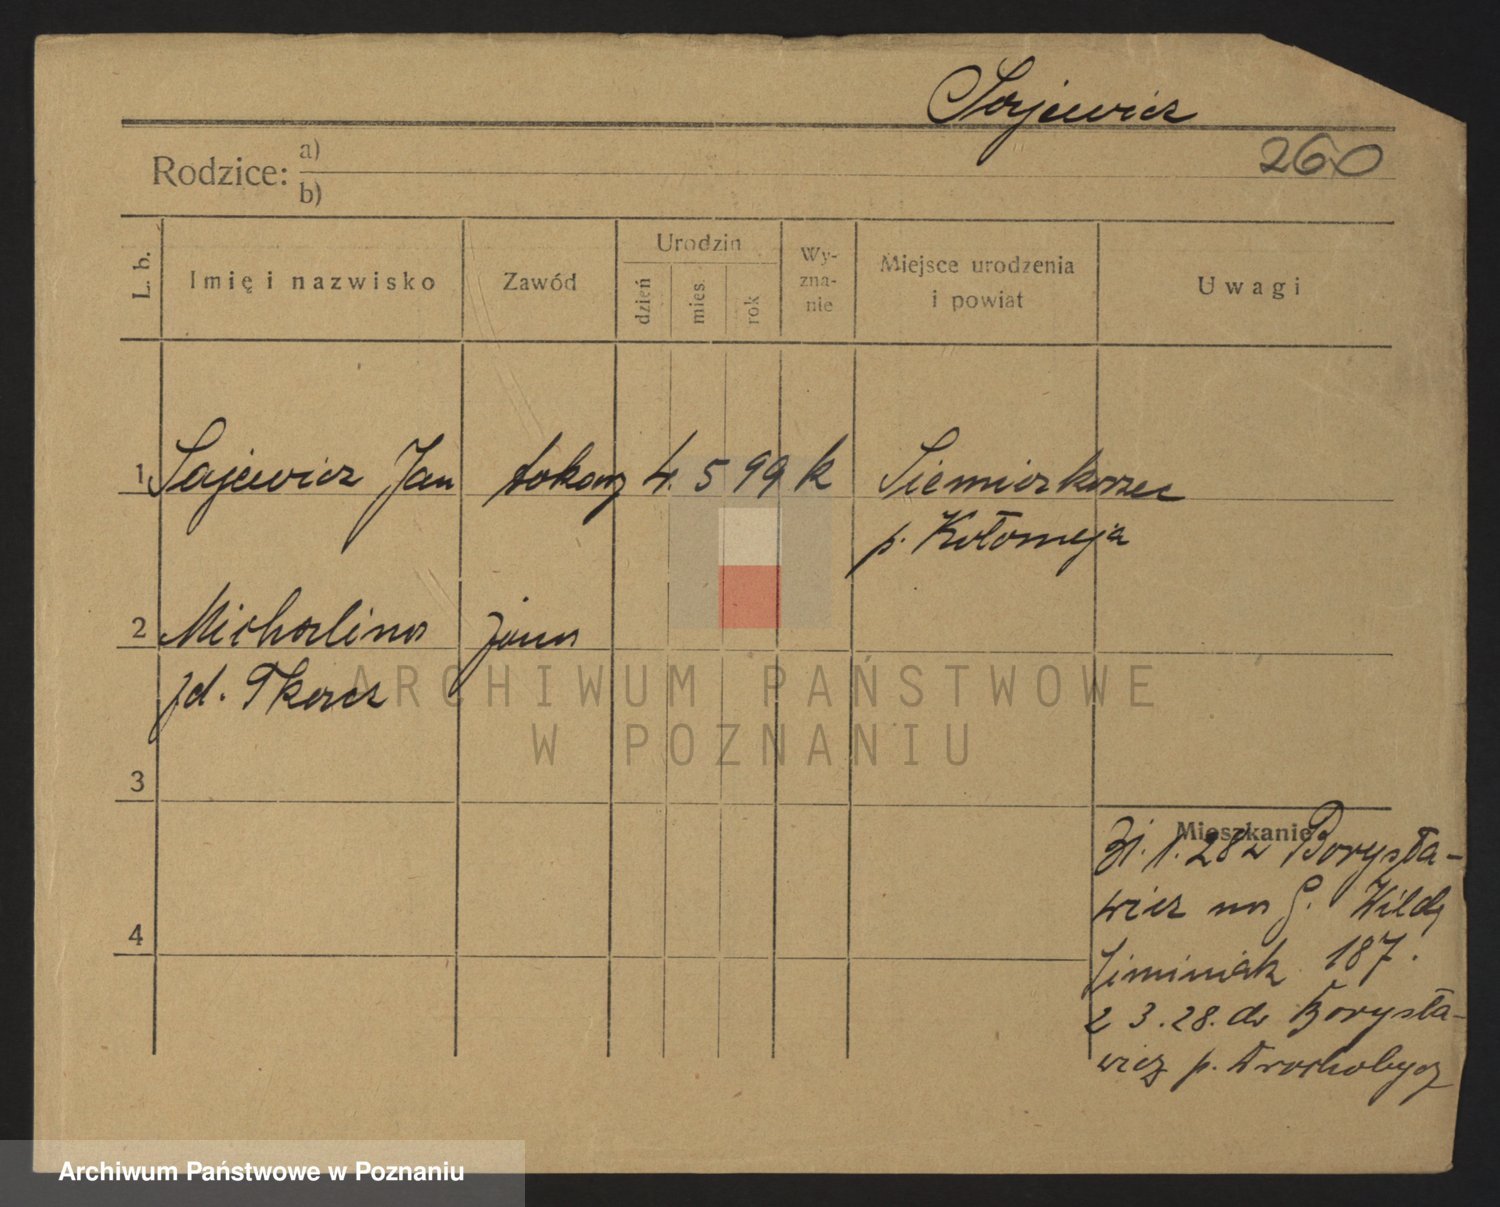 Sajewicz
260
Rodzice: a)
b)
L. b.
Imię i nazwisko
Zawód
Urodzin
dzień
mies.
rok
Wy-
zna-
nie
Miejsce urodzenia
i powiat
Uwagi
1 Sajewicz Jan tokarz 4. 5 99 k Siemiakowce
p. Kołomeja
2 Michalina żona
zd. Tkacz
3
4
Mieszkanie
31. 1. 28 z Borysła-
wicz na G. Wildę
Siminiak 187.
2 3. 28. do Borysła-
wicz p. Drochobycz
ARCHIWUM PAŃSTWOWE
W POZNANIU
Archiwum Państwowe w Poznaniu